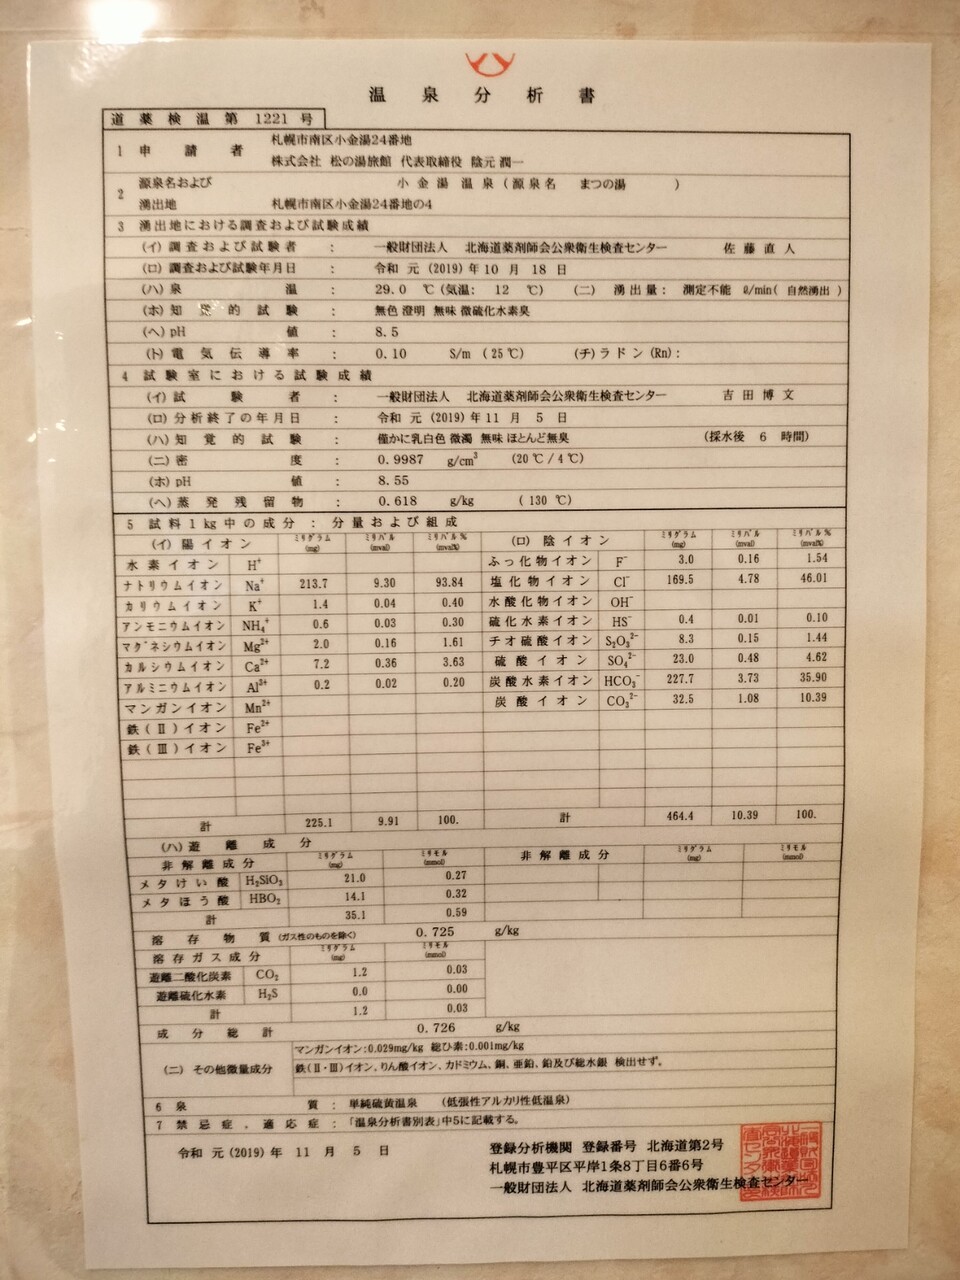 温泉分析書
道薬検温第 1221 号
1 申請者 札幌市南区小金湯24番地
株式会社 松の湯旅館 代表取締役 陰元 潤一
2 源泉名および 小金湯温泉(源泉名 まつの湯 )
湧出地 札幌市南区小金湯24番地の4
3 湧出地における調査および試験成績
(イ)調査および試験者 : 一般財団法人 北海道薬剤師会公衆衛生検査センター 佐藤直人
(ロ)調査および試験年月日 : 令和 元 (2019) 年 10 月 18 日
(ハ)泉温 : 29.0 ℃ (気温: 12 ℃) (ニ) 湧出量: 測定不能 ℓ/min( 自然湧出 )
(ホ)知覚的試験 : 無色 澄明 無味 微硫化水素臭
(ヘ)pH値 : 8.5
(ト)電気伝導率 : 0.10 S/m (25℃) (チ)ラドン(Rn):
4 試験室における試験成績
(イ)試験者 : 一般財団法人 北海道薬剤師会公衆衛生検査センター 吉田博文
(ロ)分析終了の年月日 : 令和 元 (2019) 年 11 月 5 日
(ハ)知覚的試験 : 僅かに乳白色 微濁 無味 ほとんど無臭 (採水後 6 時間)
(ニ)密度 : 0.9987 g/cm³ (20℃/4℃)
(ホ)pH値 : 8.55
(ヘ)蒸発残留物 : 0.618 g/kg (130 ℃)
5 試料1kg中の成分 : 分量および組成
(イ)陽イオン ミリグラム (mg) ミリバル (mval) ミリバル% (mval%) (ロ)陰イオン ミリグラム (mg) ミリバル (mval) ミリバル% (mval%)
水素イオン H⁺ ふっ化物イオン F⁻ 3.0 0.16 1.54
ナトリウムイオン Na⁺ 213.7 9.30 93.84 塩化物イオン Cl⁻ 169.5 4.78 46.01
カリウムイオン K⁺ 1.4 0.04 0.40 水酸化物イオン OH⁻
アンモニウムイオン NH₄⁺ 0.6 0.03 0.30 硫化水素イオン HS⁻ 0.4 0.01 0.10
マグネシウムイオン Mg²⁺ 2.0 0.16 1.61 チオ硫酸イオン S₂O₃²⁻ 8.3 0.15 1.44
カルシウムイオン Ca²⁺ 7.2 0.36 3.63 硫酸イオン SO₄²⁻ 23.0 0.48 4.62
アルミニウムイオン Al³⁺ 0.2 0.02 0.20 炭酸水素イオン HCO₃⁻ 227.7 3.73 35.90
マンガンイオン Mn²⁺ 炭酸イオン CO₃²⁻ 32.5 1.08 10.39
鉄(Ⅱ)イオン Fe²⁺
鉄(Ⅲ)イオン Fe³⁺
計 225.1 9.91 100. 計 464.4 10.39 100.
(ハ)遊離成分
非解離成分 ミリグラム (mg) ミリモル (mmol) 非解離成分 ミリグラム (mg) ミリモル (mmol)
メタけい酸 H₂SiO₃ 21.0 0.27
メタほう酸 HBO₂ 14.1 0.32
計 35.1 0.59
溶存物質(ガス性のものを除く) 0.725 g/kg
溶存ガス成分 ミリグラム (mg) ミリモル (mmol)
遊離二酸化炭素 CO₂ 1.2 0.03
遊離硫化水素 H₂S 0.0 0.00
計 1.2 0.03
成分総計 0.726 g/kg
(ニ)その他微量成分 マンガンイオン:0.029mg/kg 総ひ素:0.001mg/kg
鉄(Ⅱ・Ⅲ)イオン、りん酸イオン、カドミウム、銅、亜鉛、鉛及び総水銀 検出せず。
6 泉質: 単純硫黄温泉 (低張性アルカリ性低温泉)
7 禁忌症、適応症:「温泉分析書別表」中5に記載する。
令和 元 (2019) 年 11 月 5 日
登録分析機関 登録番号 北海道第2号
札幌市豊平区平岸1条8丁目6番6号
一般財団法人 北海道薬剤師会公衆衛生検査センター